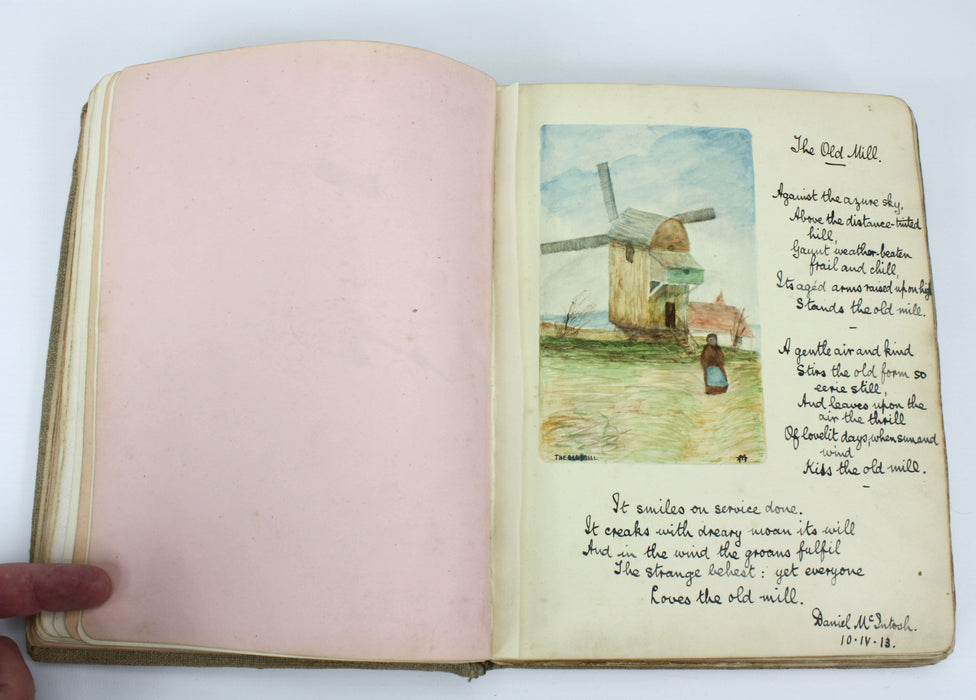 The Old Mill.
Against the azure sky,
Above the distance-tinted
hill,
Gaunt weather-beaten
frail and chill,
Its aged arms raised upon high
Stands the old mill.
A gentle air and kind
Stirs the old form so
eerie still,
And leaves upon the
air the thrill
Of lovelit days, when sun and
wind
Kiss the old mill.
THE OLD MILL
It smiles on service done.
It creaks with dreary moan its will
And in the wind the groans fulfil
The strange behest: yet everyone
Loves the old mill.
Daniel McIntosh.
10·IV·13.